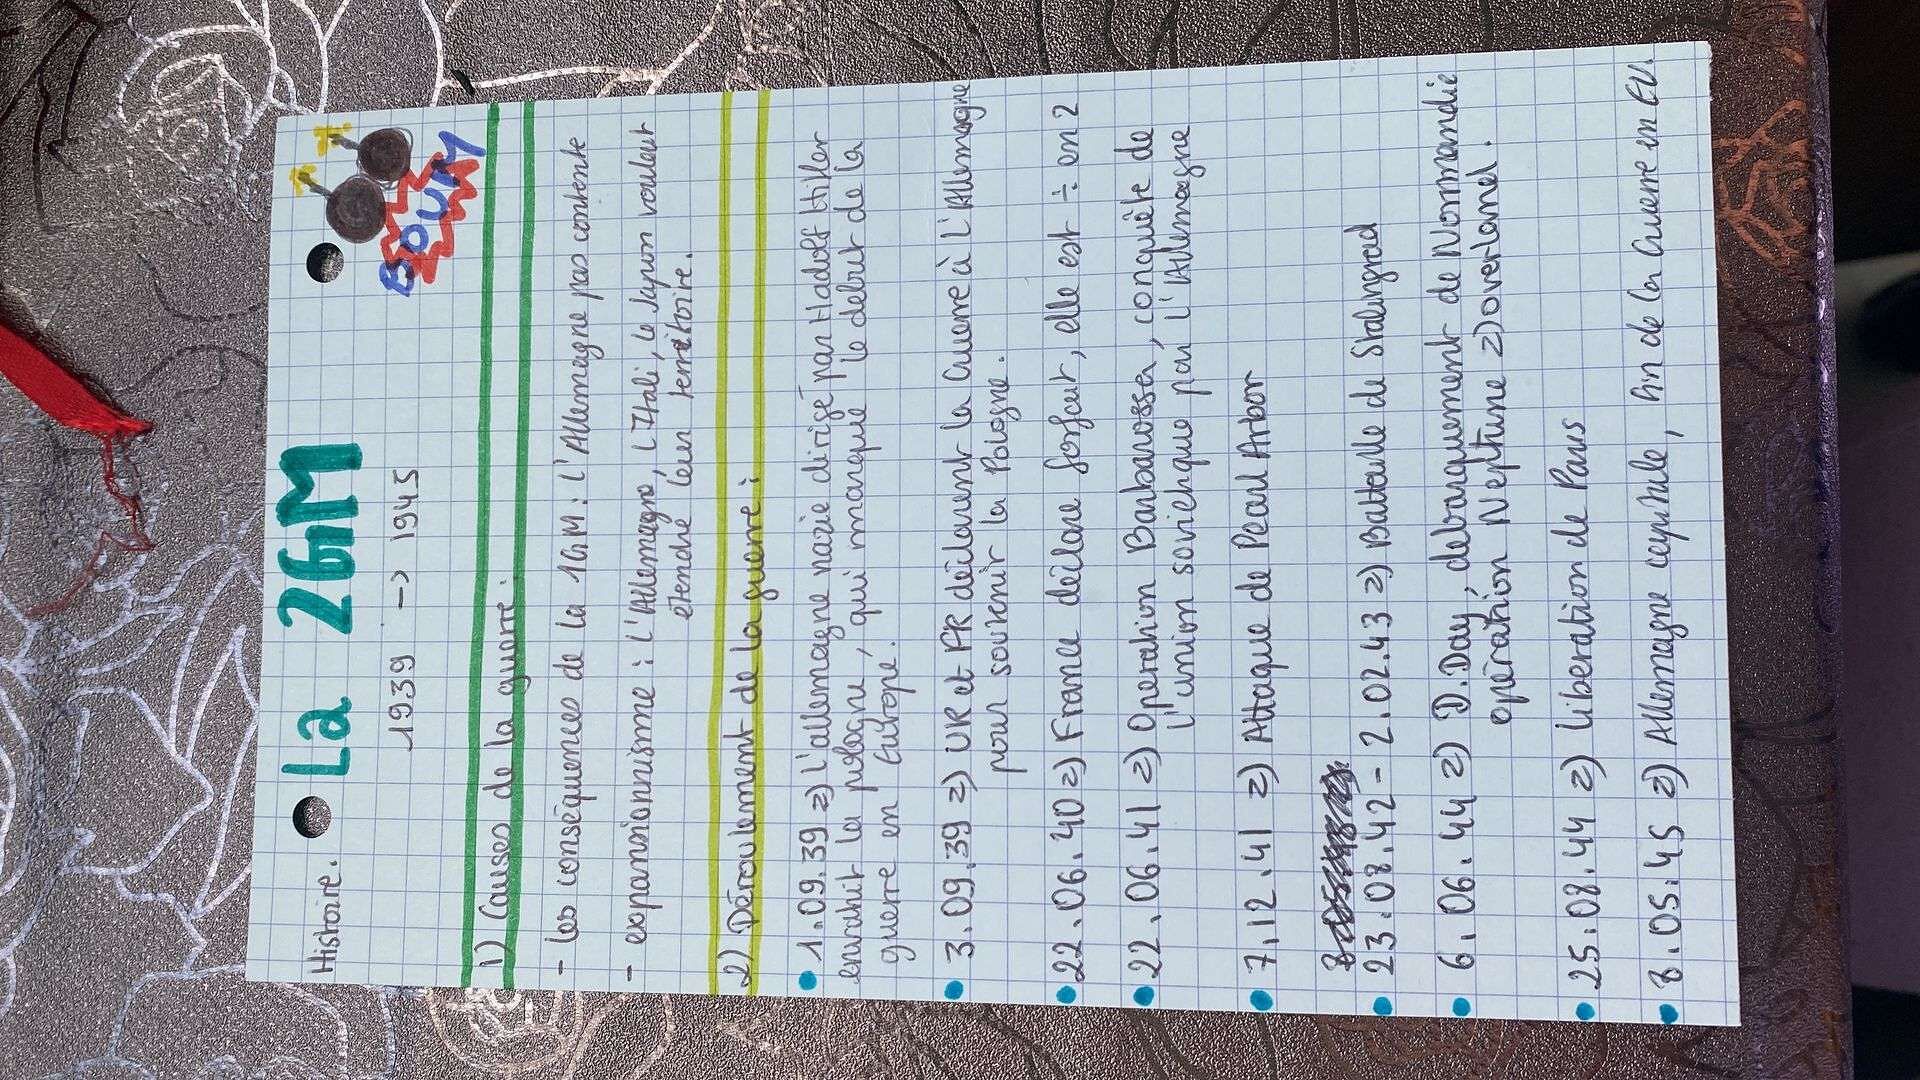 Histoire.
La 2GM
1939 -> 1945
BOUM
1) Causes de la guerre:
- les conséquences de la 1GM : l'Allemagne pas contente
- expansionnisme : l'Allemagne, l'Itali, le Japon veulent
étendre leur territoire.
2) Déroulement de la guerre :
• 1.09.39 => l'allemagne nazie dirigé par Hadolf Hitler
envahit la pologne, qui marque le debut de la
guerre en Europe.
• 3.09.39 => UR et FR déclarent la Guerre à l'Allemagne
pour soutenir la Pologne.
• 22.06.40 => France déclare forfait, elle est ÷ en 2
• 22.06.41 => Operation Barbarossa, conquète de
l'union soviétique par l'Allemagne
• 7.12.41 => Attaque de Pearl Arbor
• 23.08.42 - 2.02.43 => Bataille de Stalingrad
• 6.06.44 => D.Day, debarquement de Normandie
opération Neptune => overland.
• 25.08.44 => libération de Paris
• 8.05.45 => Allemagne capitule, fin de la Guerre en EU.